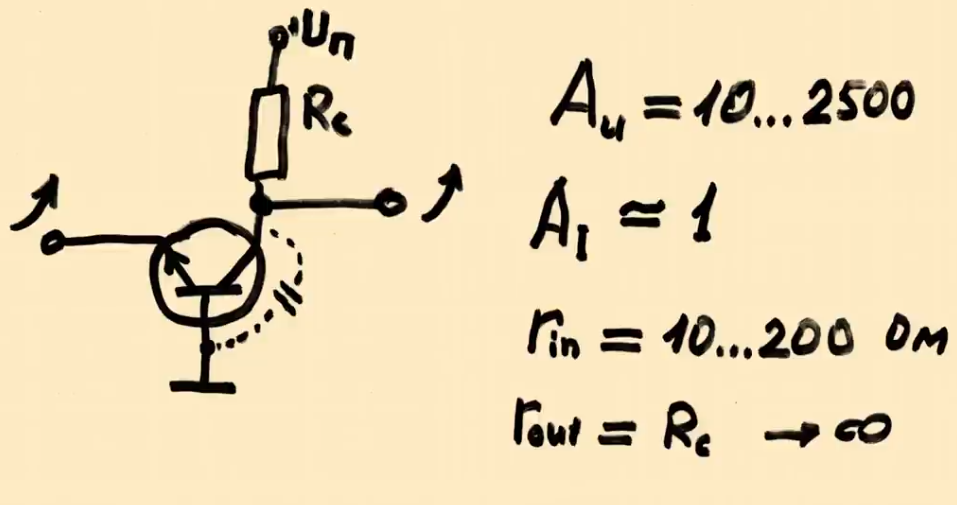 +Uп
Rc
Au = 10...2500
AI ≃ 1
rin = 10...200 Ом
rout = Rc → ∞